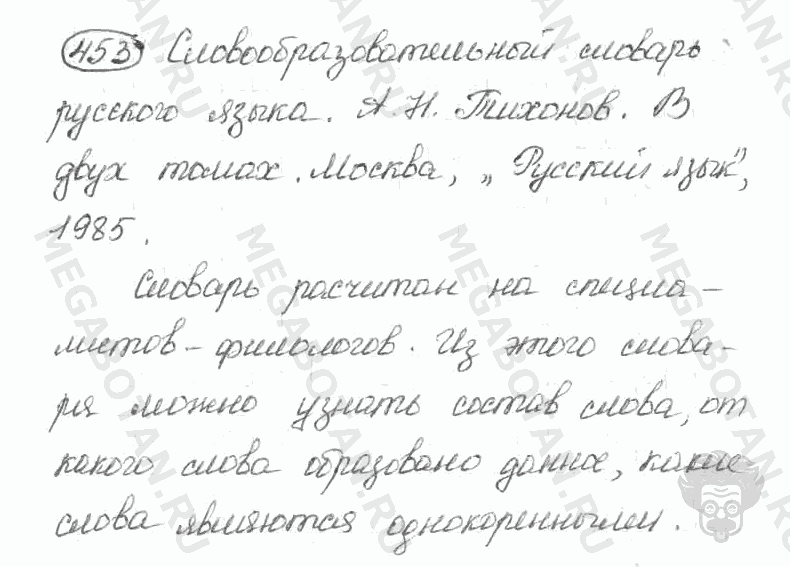 453 Словообразовательный словарь
русского языка. А.Н. Тихонов. В
двух томах. Москва, „Русский язык",
1985.
Словарь расчитан на специа-
листов-филологов. Из этого слова-
ря можно узнать состав слова, от
какого слова образовано данное, какие
слова являются однокоренными.
MEGABOTAN.RU